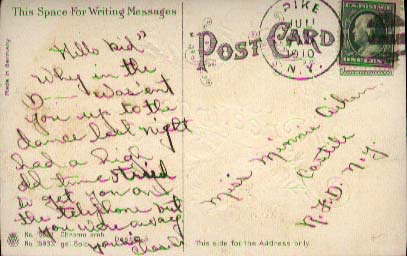 This Space For Writing Messages
Made in Germany
"Hello Kid"
Why in the
D— wasent
you up to the
dance last night
had a high
old time tried
to get you on
the telephone but
you were away
yours
Chas
POST CARD
PIKE
JUL
1910
N.Y.
Miss Minnie
Castile
R.F.D. N.Y.
This side for the Address only.